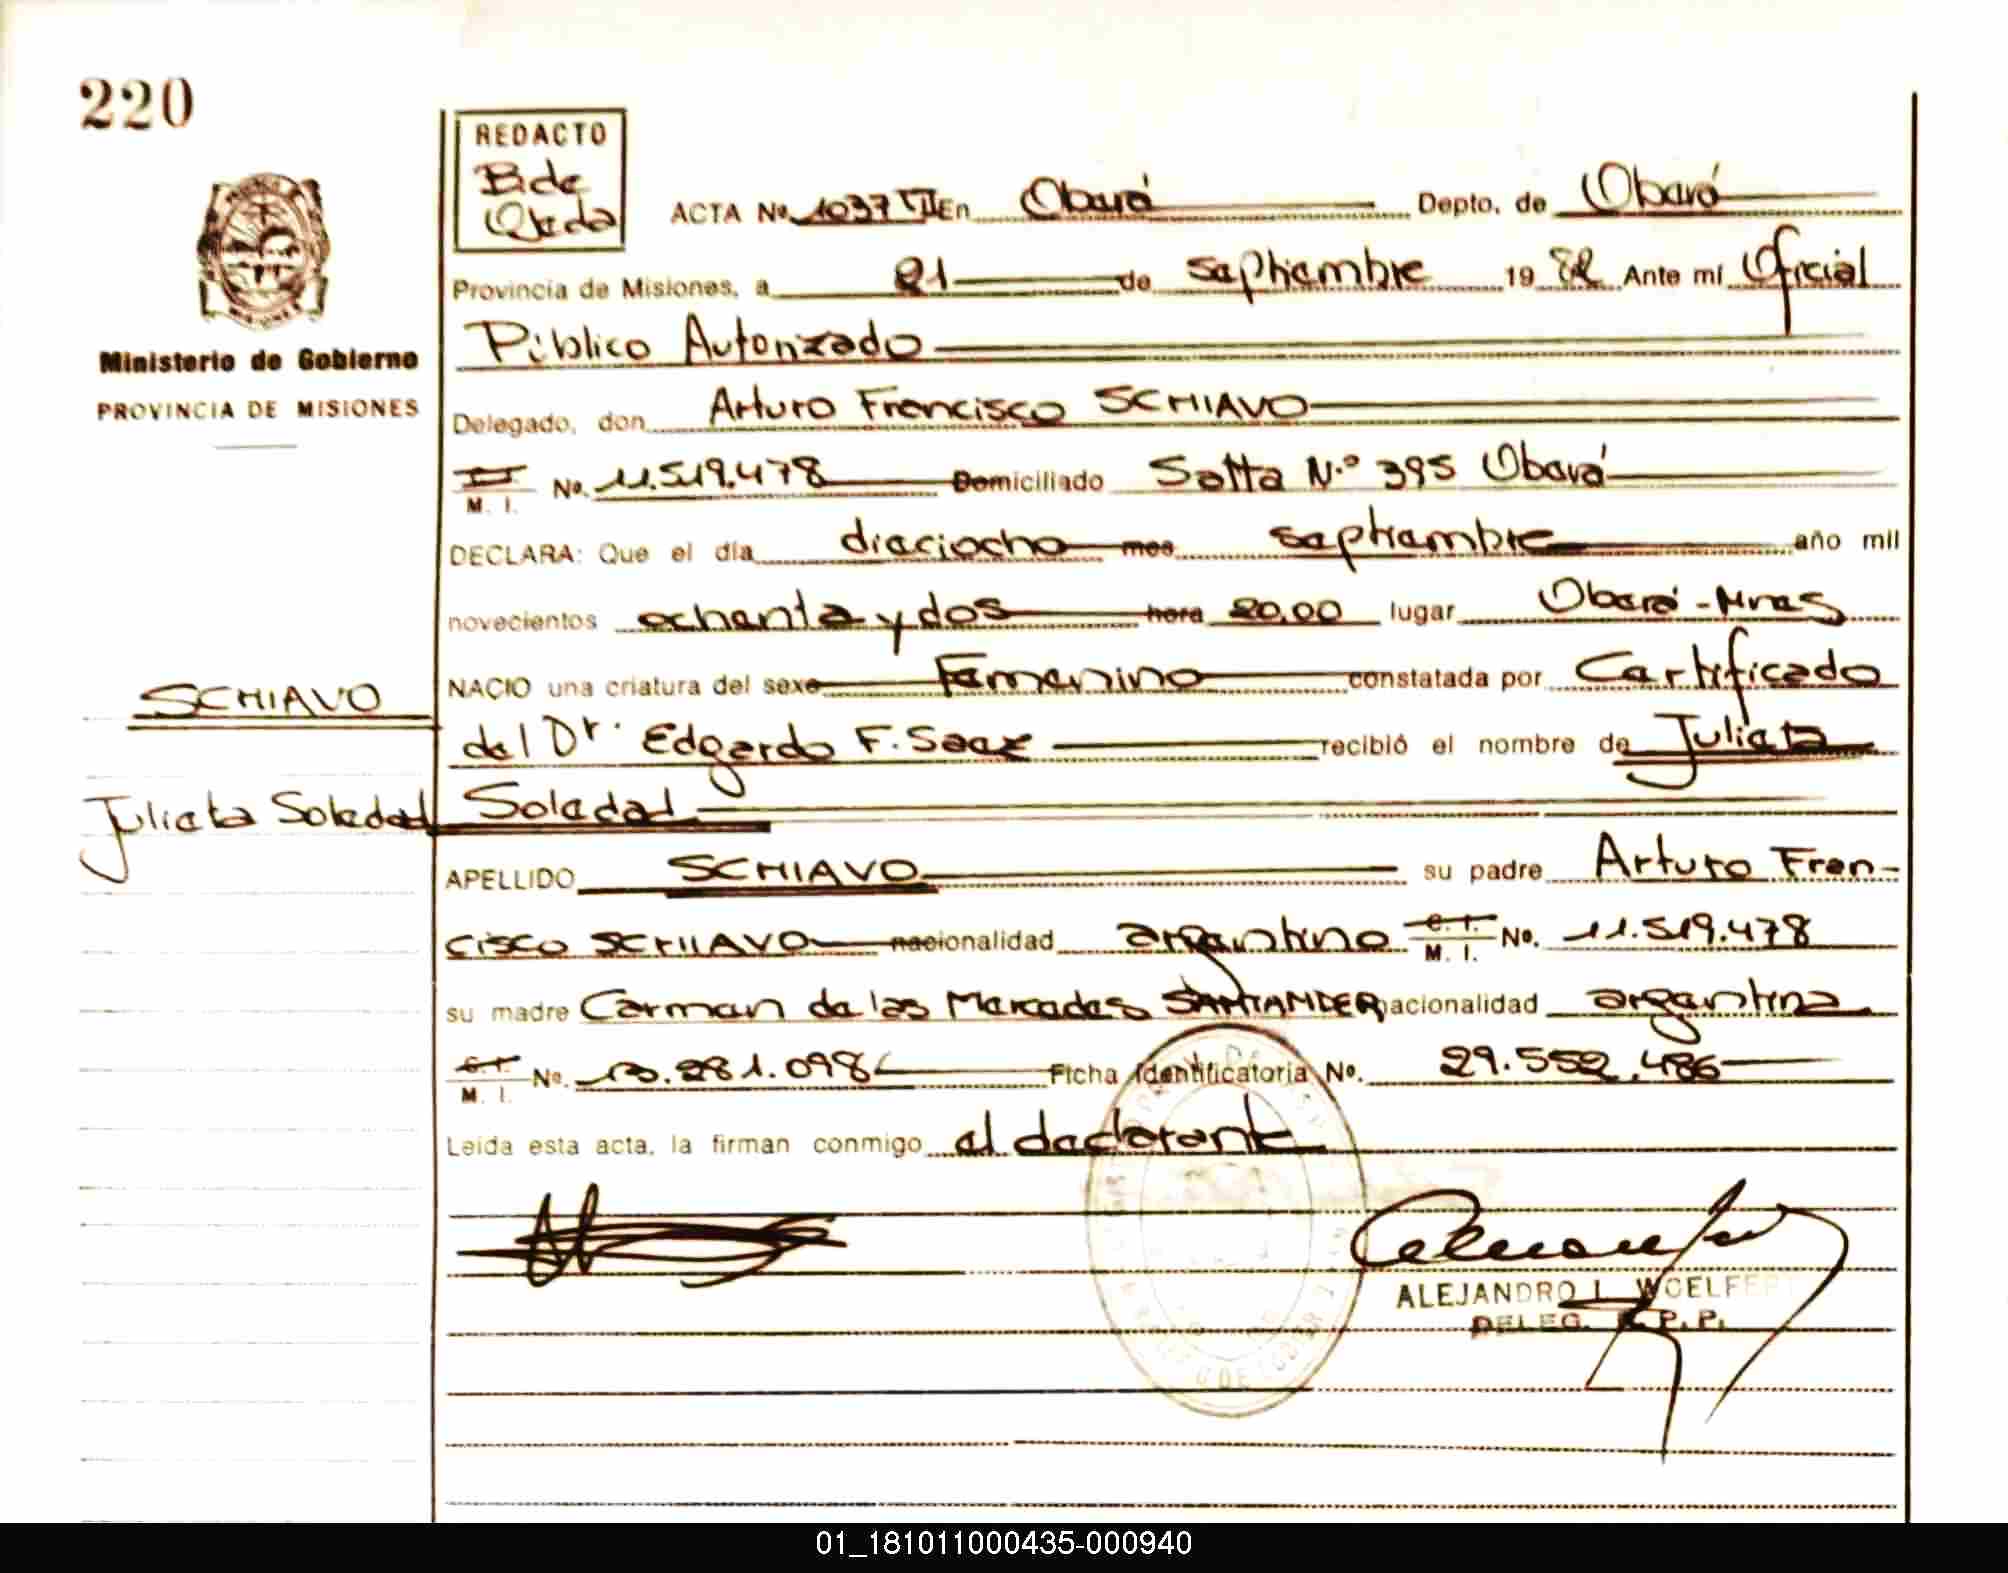 220
REDACTO
B. de
Ojeda
ACTA No. 1037 VII En Oberá Depto. de Oberá
Provincia de Misiones, a 21 de septiembre 19 82 Ante mí Oficial
Público Autorizado
Ministerio de Gobierno
PROVINCIA DE MISIONES
Delegado, don Arturo Francisco SCHIAVO
M. I. No. 11.519.478 Domiciliado Salta N.° 395 Oberá
DECLARA: Que el día dieciocho mes septiembre año mil
novecientos ochenta y dos hora 20,00 lugar Oberá - Mnes
SCHIAVO
NACIO una criatura del sexo Femenino constatada por Certificado
del Dr. Edgardo F. recibió el nombre de Julieta
Julieta Soledad
Soledad
APELLIDO SCHIAVO su padre Arturo Fran-
cisco SCHIAVO nacionalidad argentino C. I. M. I. No. 11.519.478
su madre Carmen de las Mercedes SANTANDER nacionalidad argentina
C. I. M. I. No. 13.281.098 Ficha Identificatoria No. 29.552.486
Leída esta acta, la firman conmigo el declarante
ALEJANDRO L. WOELFERT
DELEG. R. P. P.
01_181011000435-000940